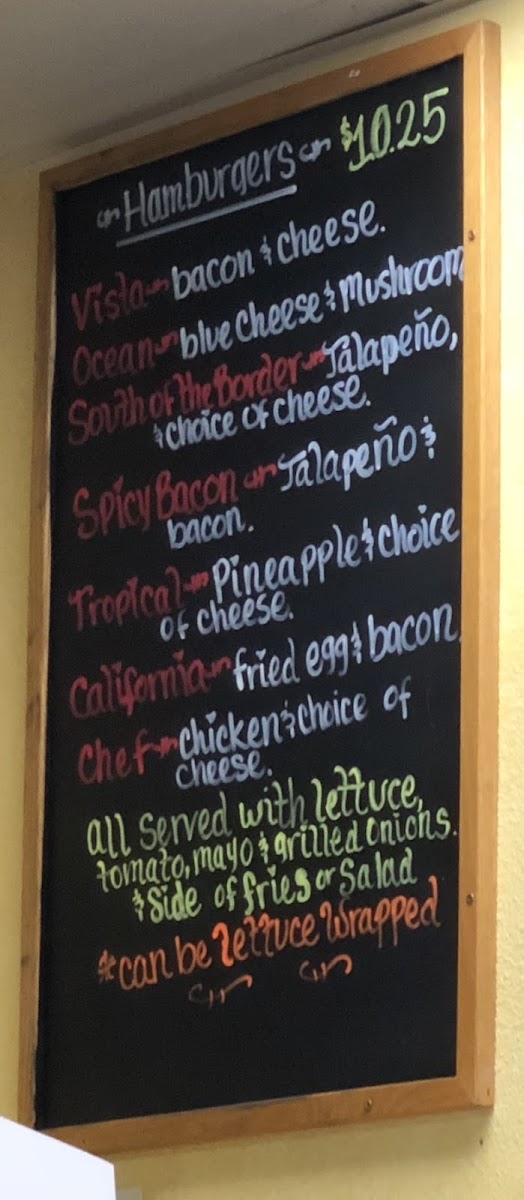 Hamburgers $10.25
Vista bacon & cheese.
Ocean blue cheese & Mushroom
South of the Border Jalapeño,
& choice of cheese.
Spicy Bacon Jalapeño &
bacon.
Tropical Pineapple & choice
of cheese.
California fried egg & bacon
Chef chicken & choice of
cheese.
all served with lettuce,
tomato, mayo & grilled onions.
& side of fries or salad
*can be lettuce wrapped